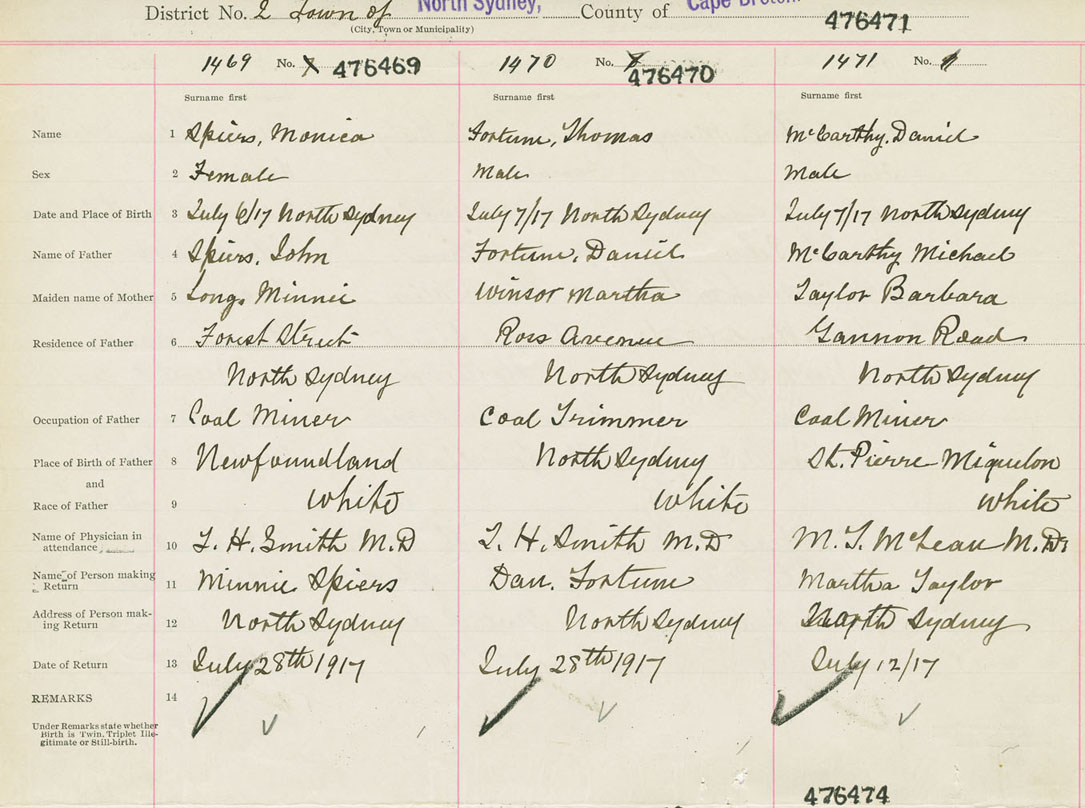 District No. 2 Town of North Sydney, County of Cape Breton
(City, Town or Municipality)
476471
1469 No. 7 476469 1470 No. 8 476470 1471 No.
Surname first Surname first Surname first
Name 1 Spiers, Monica Fortune, Thomas McCarthy, Daniel
Sex 2 Female Male Male
Date and Place of Birth 3 July 6/17 North Sydney July 7/17 North Sydney July 7/17 North Sydney
Name of Father 4 Spiers, John Fortune, Daniel McCarthy Michael
Maiden name of Mother 5 Long, Minnie Winsor Martha Taylor Barbara
Residence of Father 6 Forest Street Ross Avenue Gannon Road
North Sydney North Sydney North Sydney
Occupation of Father 7 Coal Miner Coal Trimmer Coal Miner
Place of Birth of Father 8 Newfoundland North Sydney St. Pierre Miquelon
and
Race of Father 9 White White White
Name of Physician in
attendance 10 T. H. Smith M.D T. H. Smith M.D M. T. McLean M.D.
Name of Person making
Return 11 Minnie Spiers Dan. Fortune Martha Taylor
Address of Person mak-
ing Return 12 North Sydney North Sydney North Sydney
Date of Return 13 July 28th 1917 July 28th 1917 July 12/17
REMARKS 14
Under Remarks state whether
Birth is Twin, Triplet Ille-
gitimate or Still-birth.
476474